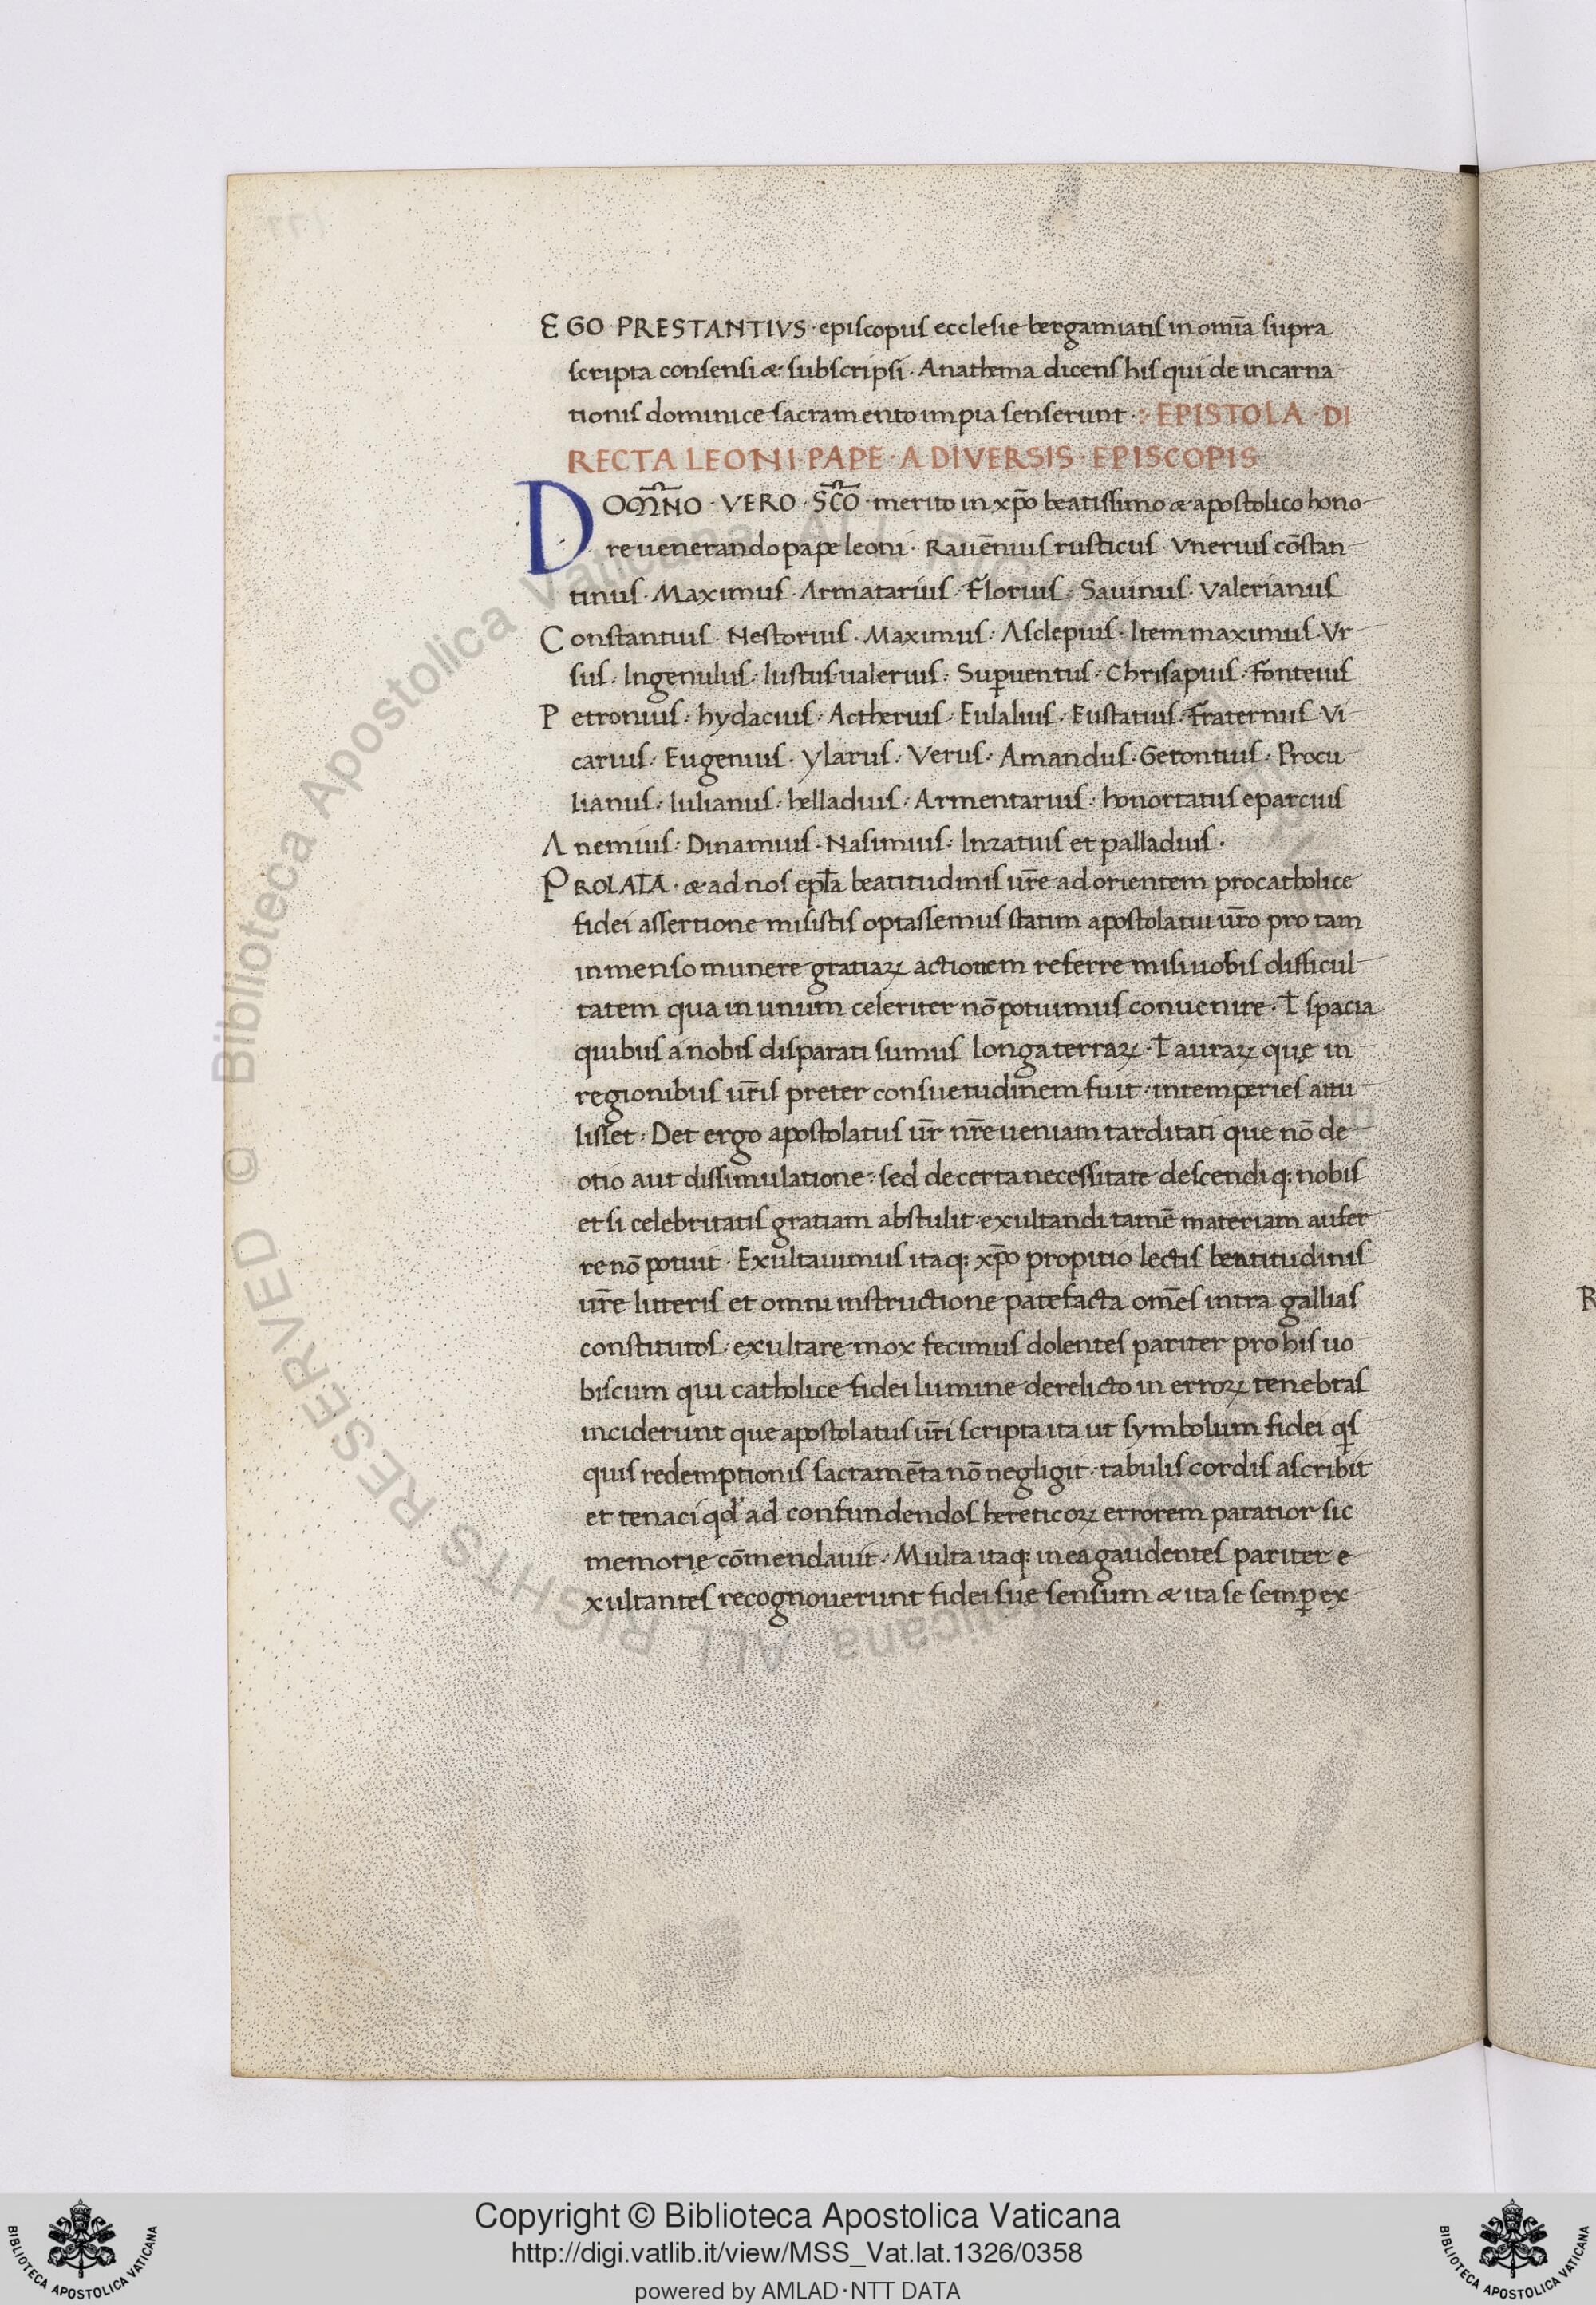 EGO PRESTANTIVS · episcopus ecclesie bergamiatis in omĩa supra
scripta consensi & subscripsi · Anathema dicens his qui de incarna
tionis dominice sacramento impia senserunt · EPISTOLA · DI
RECTA LEONI · PAPE · A DIVERSIS · EPISCOPIS
DOM̅N̅O · VERO · SC̅O · merito in xp̅o beatissimo & apostolico hono
re uenerando pape leoni · Raue̅nius rusticus · Vnerius co̅stan
tinus · Maximus · Armatarius · Florius · Sauinus · Valerianus
Constantius · Nestorius · Maximus · Asclepius · Item maximus · Vr
sus · Ingenulus · Iustus ualerius · Sup̲uentus · Chrisapius · Fonteius
Petronius · hydacius · Actherius · Eulalius · Eustatius · Fraternus · Vi
carius · Eugenius · ylarus · Verus · Amandus · Gerontius · Procu
lianus · Iulianus · helladius · Armentarius · honortatus eparcius
Anemius · Dinamius · Nasimius · Inzatius et palladius ·
PROLATA · & ad nos epl̅a beatitudinis ur̅e ad orientem pro catholice
fidei assertione misistis optassemus statim apostolatui ur̅o pro tam
inmenso munere gratiaꝝ actionem referre misi uobis difficul
tatem qua in unum celeriter no̅ potuimus conuenire · ł spacia
quibus a nobis disparati sumus longa terraꝝ · ł auraꝝ quę in
regionibus ur̅is preter consuetudinem fuit · intemperies attu
lisset · Det ergo apostolatus ur̅ nr̅e ueniam tarditati que no̅ de
otio aut dissimulatione · sed de certa necessitate descendi q: nobis
et si celebritatis gratiam abstulit · exultandi tame̅ materiam aufer
re no̅ potuit · Exultauimus itaq: xp̅o propitio lectis beatitudinis
ur̅e litteris et omni instructione patefacta om̅es intra gallias
constitutos · exultare mox fecimus dolentes pariter pro his uo
biscum qui catholice fidei lumine derelicto in erroꝝ tenebras
inciderunt que apostolatus ur̅i scripta ita ut symbolum fidei qs̅
quis redemptionis sacrame̅ta no̅ negligit · tabulis cordis ascribit
et tenaci qd̅ ad confundendos hereticoꝝ errorem paratior sic
memorię co̅mendauit · Multa itaq: in ea gaudentes pariter e
xultantes recognouerunt fidei suę sensum & ita se semp̲ ex
© Biblioteca Apostolica Vaticana ALL RIGHTS RESERVED
Copyright © Biblioteca Apostolica Vaticana
http://digi.vatlib.it/view/MSS_Vat.lat.1326/0358
powered by AMLAD·NTT DATA
BIBLIOTECA APOSTOLICA VATICANA
BIBLIOTECA APOSTOLICA VATICANA